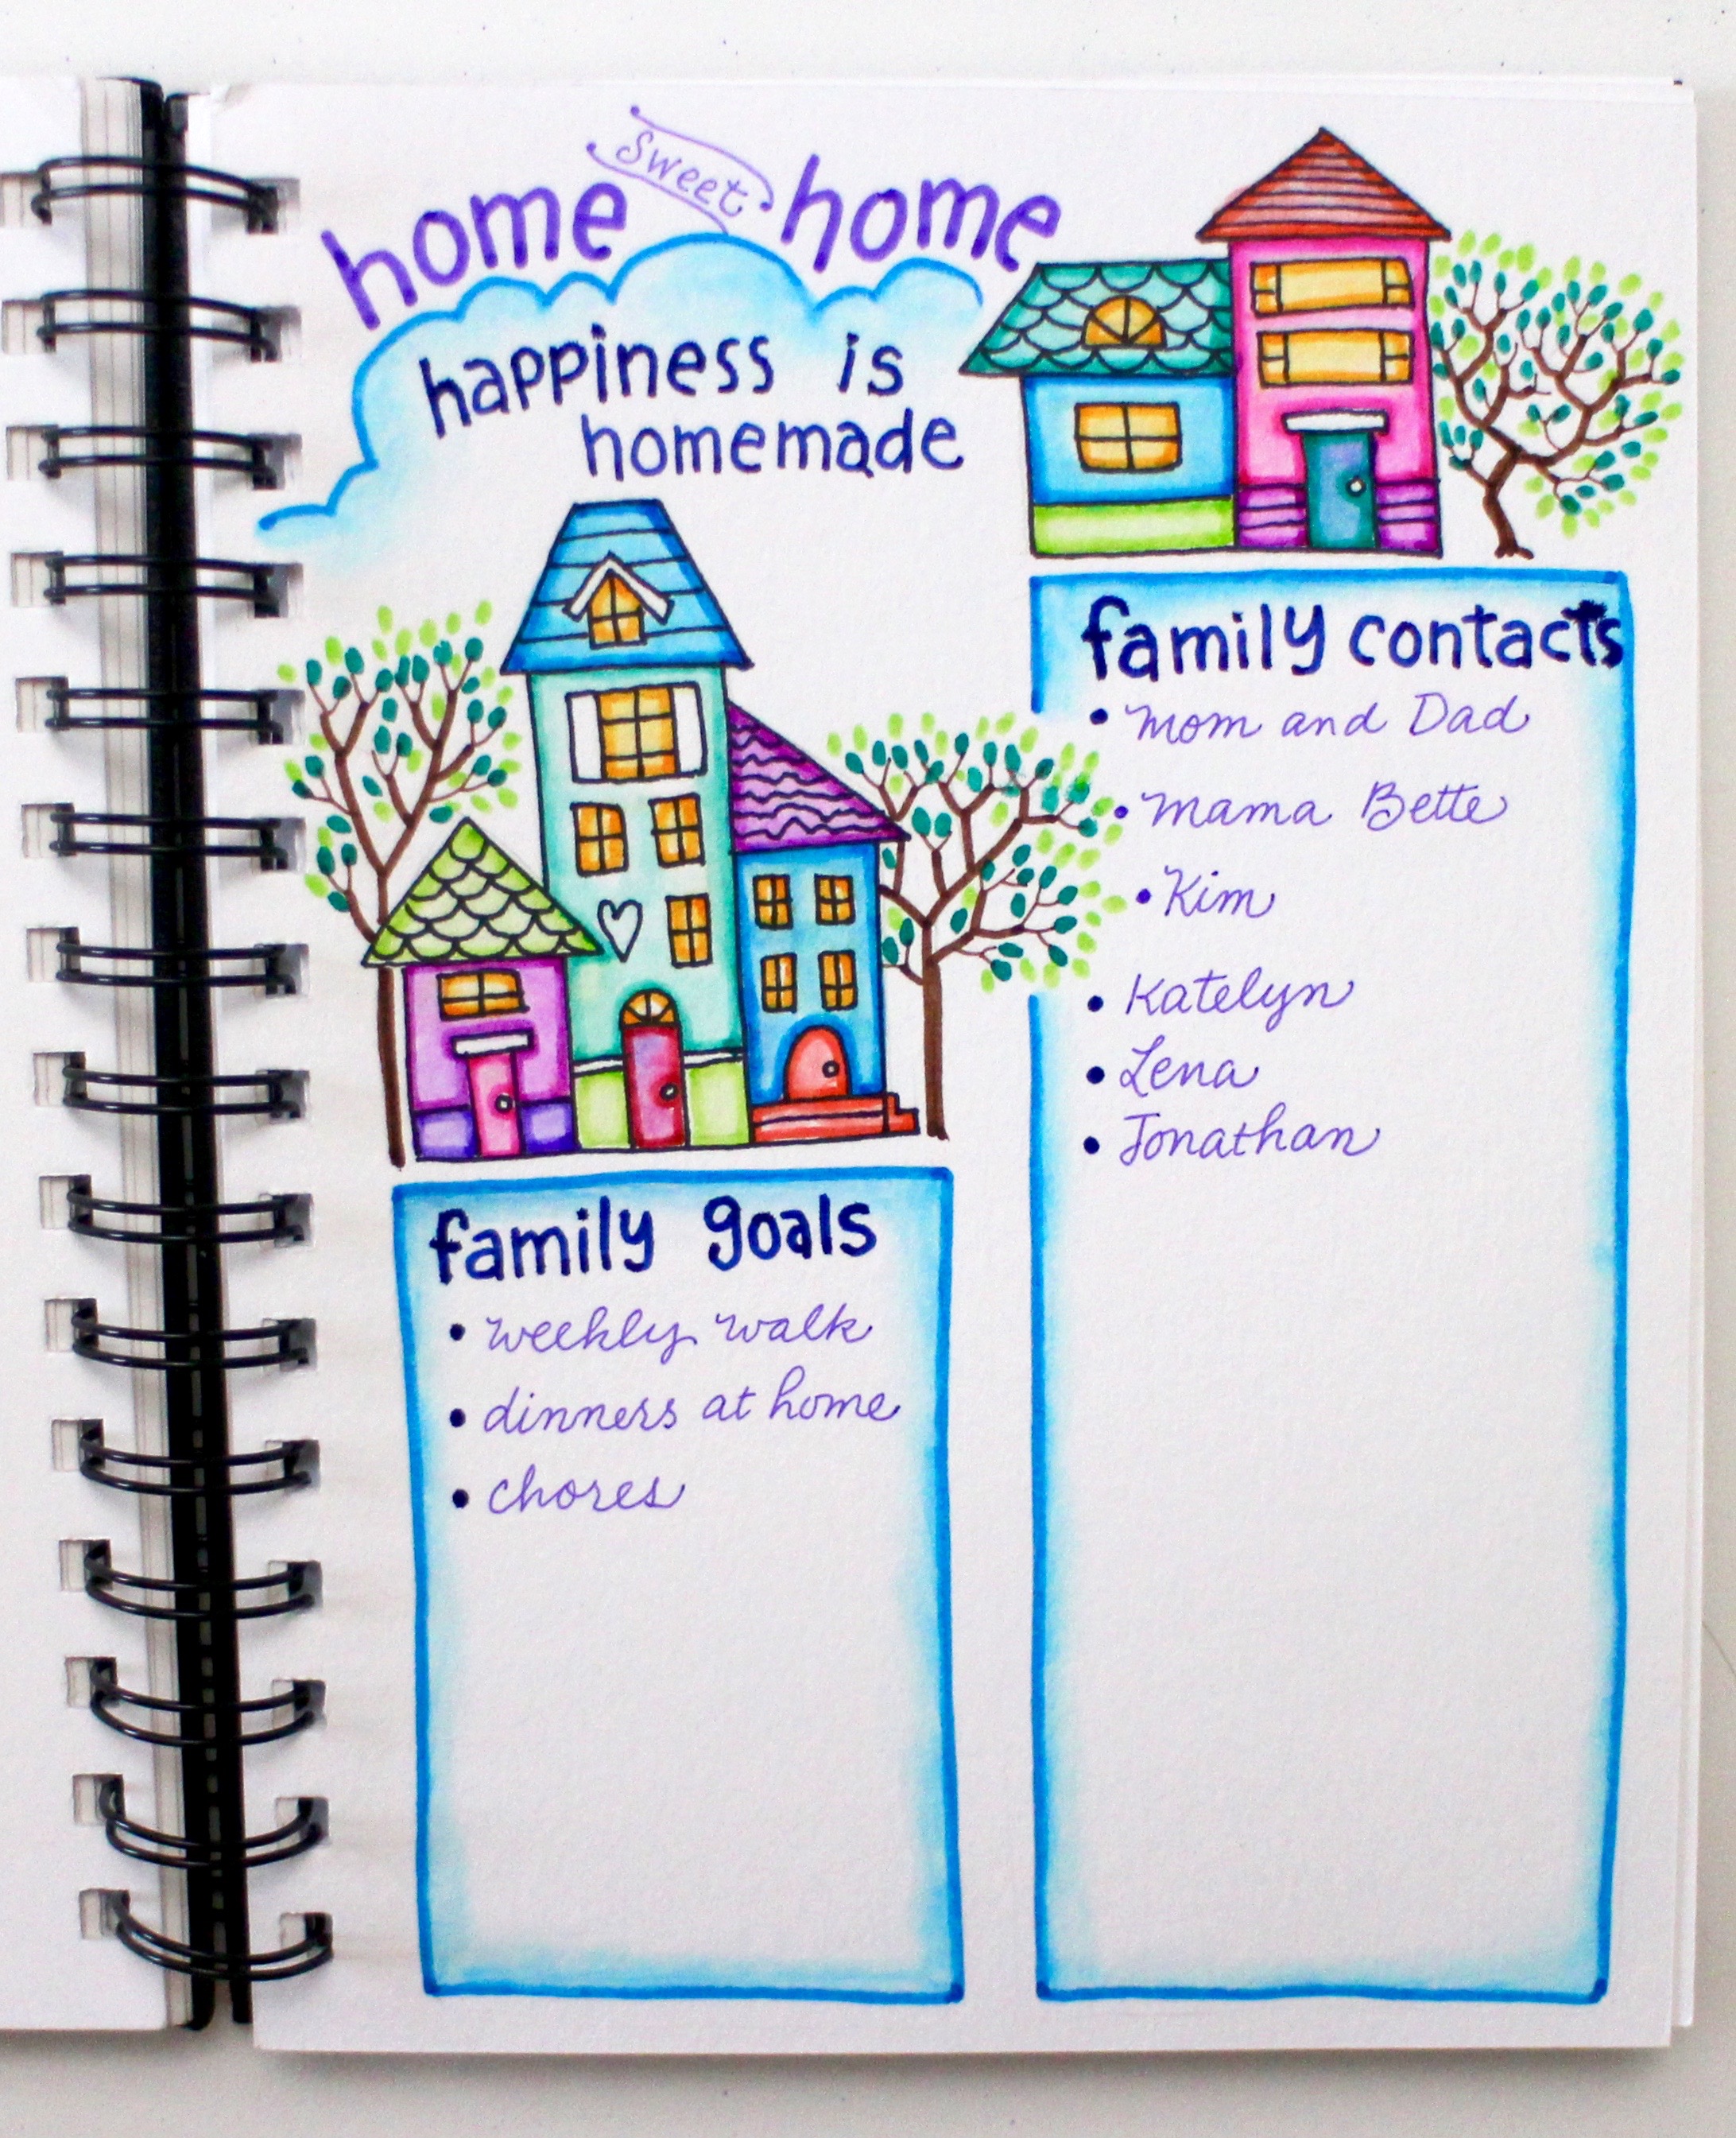 home sweet home
happiness is
homemade
family contacts
• Mom and Dad
• Mama Bette
• Kim
• Katelyn
• Lena
• Jonathan
family goals
• weekly walk
• dinners at home
• chores